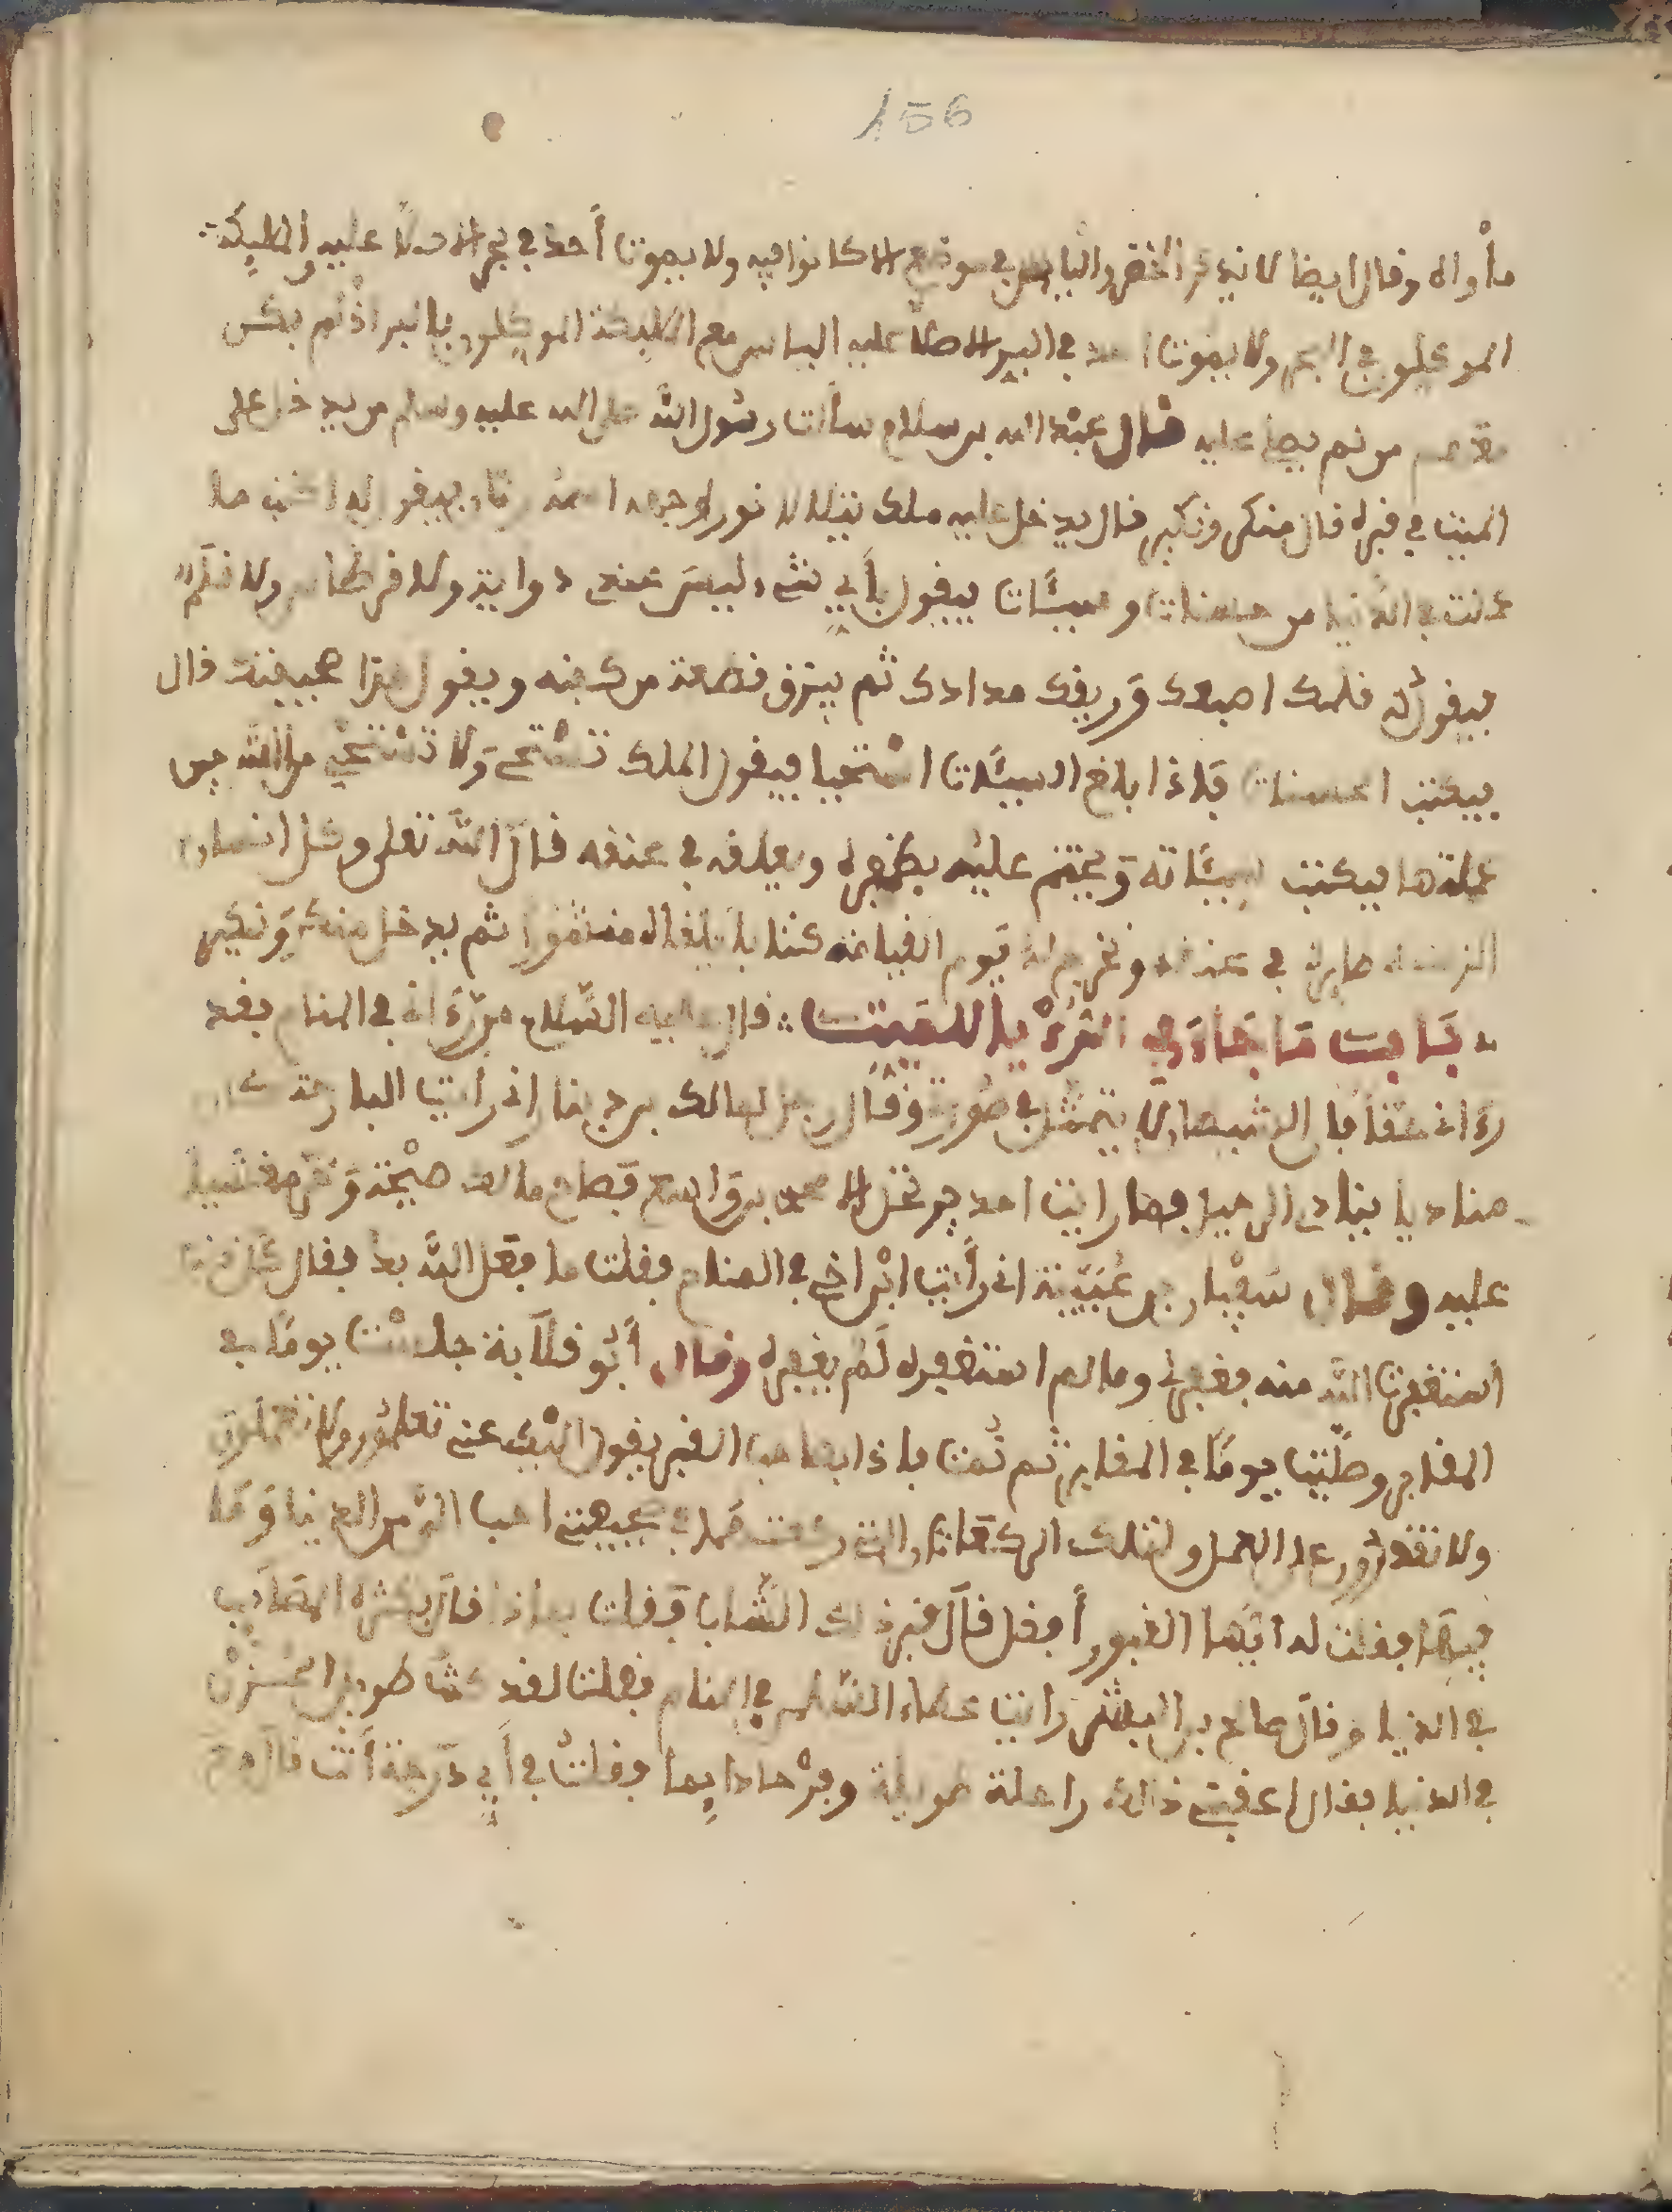 156
مأواه وقال ايضا لا يذكر الخضر والياس في موضع الا كانوا فيه ولا يموت أحد في بحر الا صلا عليه والمليكة
الموكلون في البحر ولا يموت احد في البر الا صلا عليه الياس مع المليكة الموكلون بالبر اذ لم يكن
معهم من لم يصل عليه قال عبد الله بن سلام سألت رسول الله صلى الله عليه وسلم من يدخل على
الميت في قبره قال منكر ونكير قال يدخل عليه ملك يتلالا نور وجهه اسمه رمان فيقول له اكتب ما
عملت في الدنيا من حسنات وسيئات فيقول بأيي شيء ليس عندي دواية ولا قرطاس ولا قلم
فيقول له قلمك اصبعك وريقك مدادك ثم يمزق قطعة من كفنه ويقول هذا صحيفتك قال
فيكتب الحسنات فإذا بلغ السيئات استحيا فيقول الملك تستحي ولا تستحي من الله حين
عملتها فيكتب سيئاته ويختم عليه بظفره ويعلقه في عنقه قال الله تعلى وكل انسان
الزمناه طايره في عنقه ونخرج له يوم القيامة كتابا يلقاه منشورا ثم يدخل منكر ونكير
باب ما جاء في الرؤيا للميت قال عليه السلام من رءاني في المنام فقد
رءاني حقا فإن الشيطان لا يتمثل في صورتي وقال رجل لمالك بن دينار اني رأيت البارحة كان
مناديا ينادي الرحيل فما رايت احد يرتحل الا محمد بن واسع فصاح مالك صيحة وخر مغشيا
عليه وقال سفيان بن عيينة اني رأيت ابن اخي في المنام فقلت ما فعل الله بك فقال كل ذنب
استغفرت الله منه فغفر لي وما لم استغفره لم يغفره وقال أبو قلابة جلست يوما في
المقابر وصليت يوما في المقابر ثم نمت فإذا بصاحب القبر يقول اليك عني تعلمون ولا تعملون
ولا نقدرون على العمل ولتلك الركعات التي ركعت هما في صحيفتي احب الي من الدنيا وما
فيها فقلت له ايها القبور أفضل قال قبر ذلك الشاب فقلت بماذا قال بكثرة المصايب
في الدنيا وقال صالح بن البشر رايت عطاء السلمي في المنام فقلت لقد كنت طويل الحزن
في الدنيا فقال اعقبني ذلك راحة طويلة وفرحا دايما فقلت في أيي درجة أنت قال مع